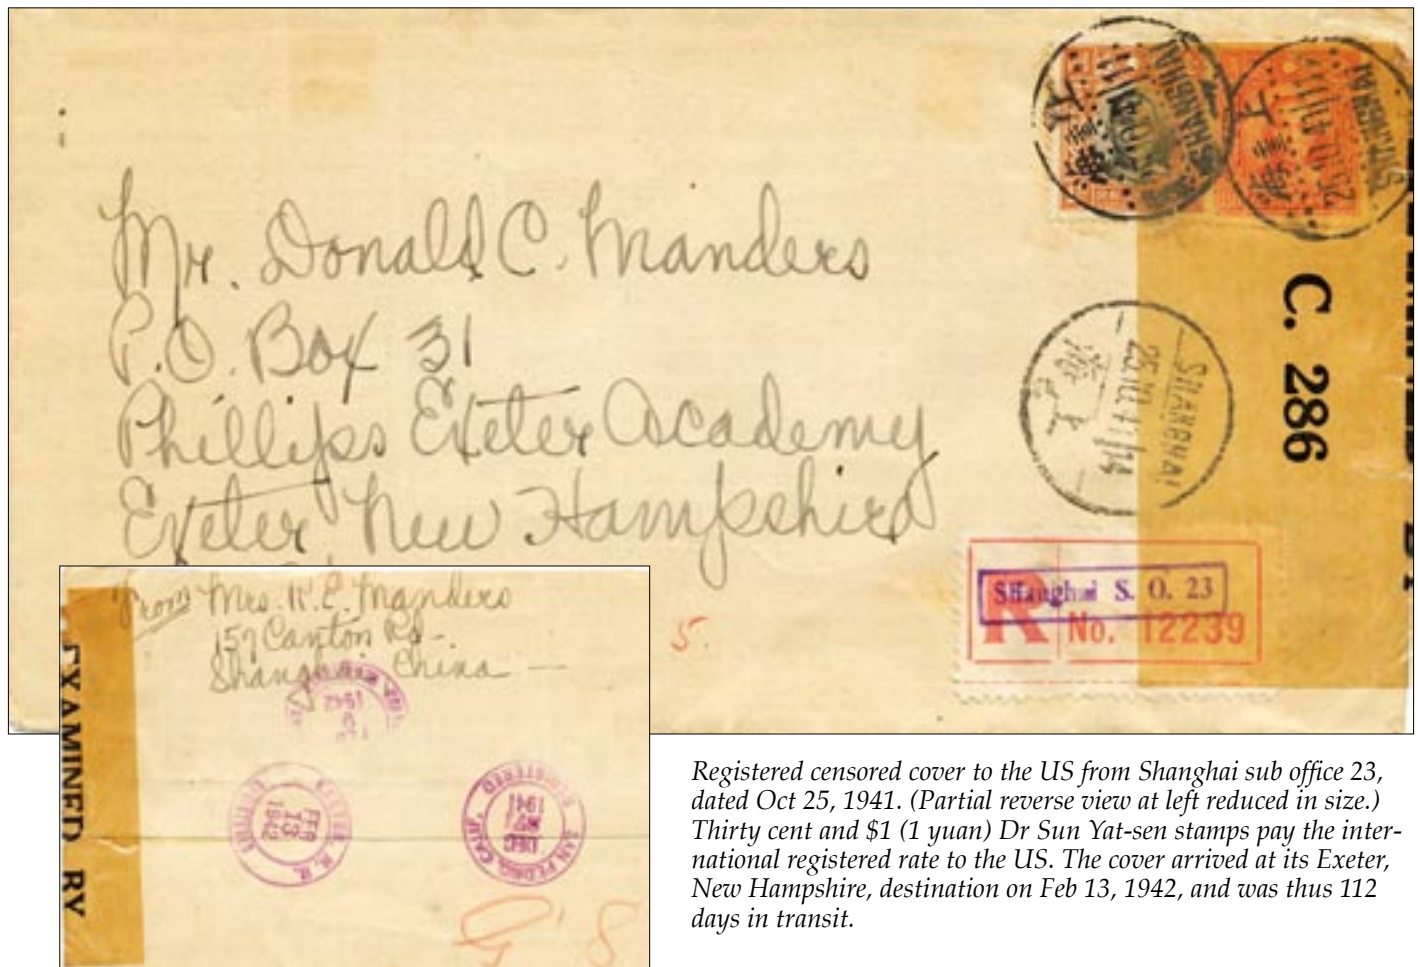 Mr. Donald C. Manders
P.O. Box 31
Phillips Exeter Academy
Exeter, New Hampshire
SHANGHAI
上海
SHANGHAI
上海
C. 286
Shanghai S. O. 23
R No. 12239
5.
From Mrs. K. E. Manders
157 Canton Rd-
Shanghai China -
EXAMINED BY
1942
EXETER, N. H.
FEB
13
1942
REGISTERED
SAN PEDRO, CALIF.
DEC
1941
REGISTERED
Registered censored cover to the US from Shanghai sub office 23,
dated Oct 25, 1941. (Partial reverse view at left reduced in size.)
Thirty cent and $1 (1 yuan) Dr Sun Yat-sen stamps pay the inter-
national registered rate to the US. The cover arrived at its Exeter,
New Hampshire, destination on Feb 13, 1942, and was thus 112
days in transit.